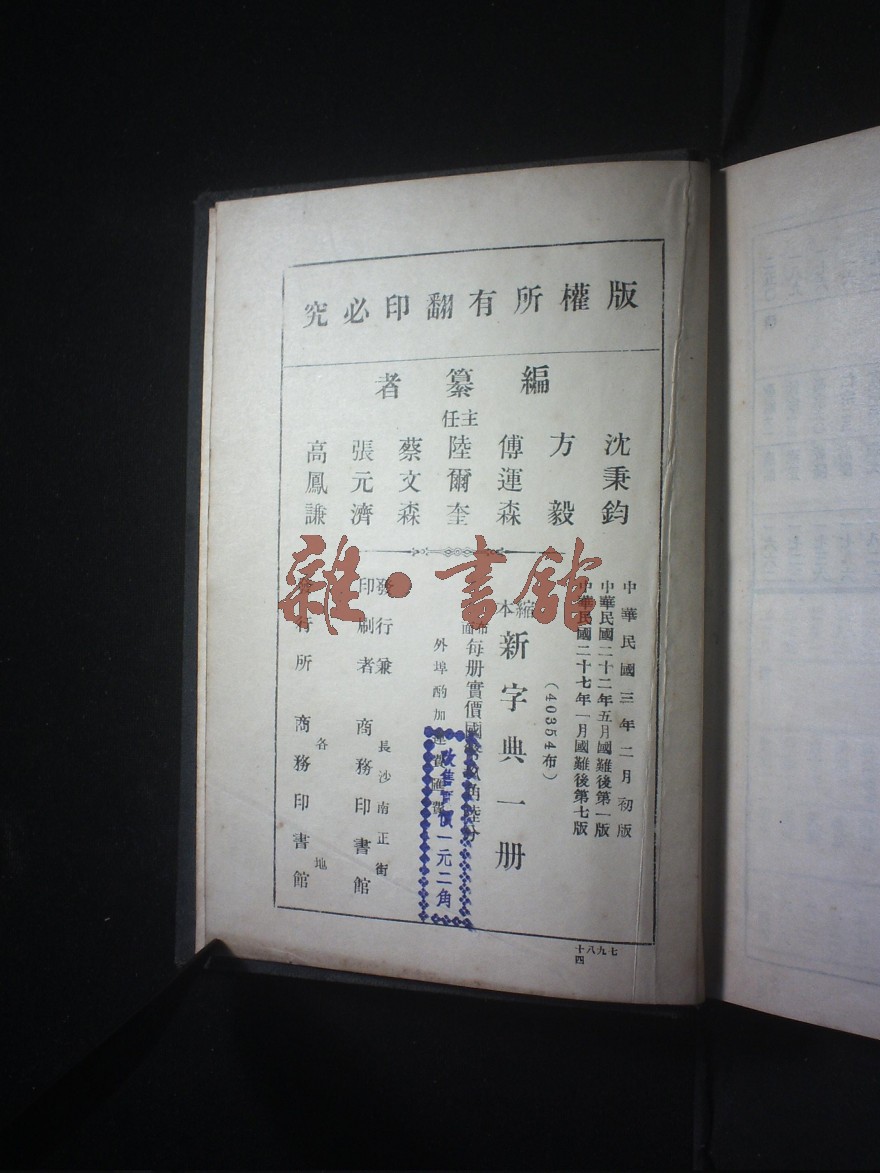 版權所有翻印必究
編纂者
沈秉鈞
方毅
傅運森
主任
陸爾奎
蔡文森
張元濟
高鳳謙
中華民國三年二月初版
中華民國二十二年五月國難後第一版
中華民國二十七年一月國難後第七版
(40354布)
縮本
新字典一册
布面
每册實價國幣角陸分
外埠酌加運費匯費
改售實價一元二角
發行兼
印刷者
長沙南正街
商務印書館
發行所
各地
商務印書館
七九八十四
雜·書館